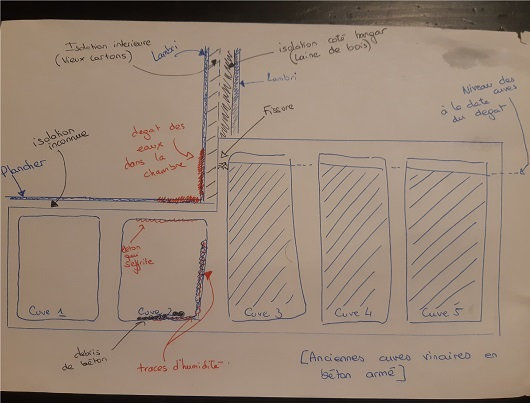 Isolation interieure
(Vieux cartons)
Lambri
isolation coté hangar
(Laine de bois)
Lambri
Niveau des
cuves
à la date
du degat
Fissure
isolation
inconnue
degat des
eaux
dans la
chambre
Plancher
béton
qui
s'effrite
Cuve 1
Cuve 2
Cuve 3
Cuve 4
Cuve 5
debris
de béton
traces d'humidité
[Anciennes cuves vinaires en
béton armé]